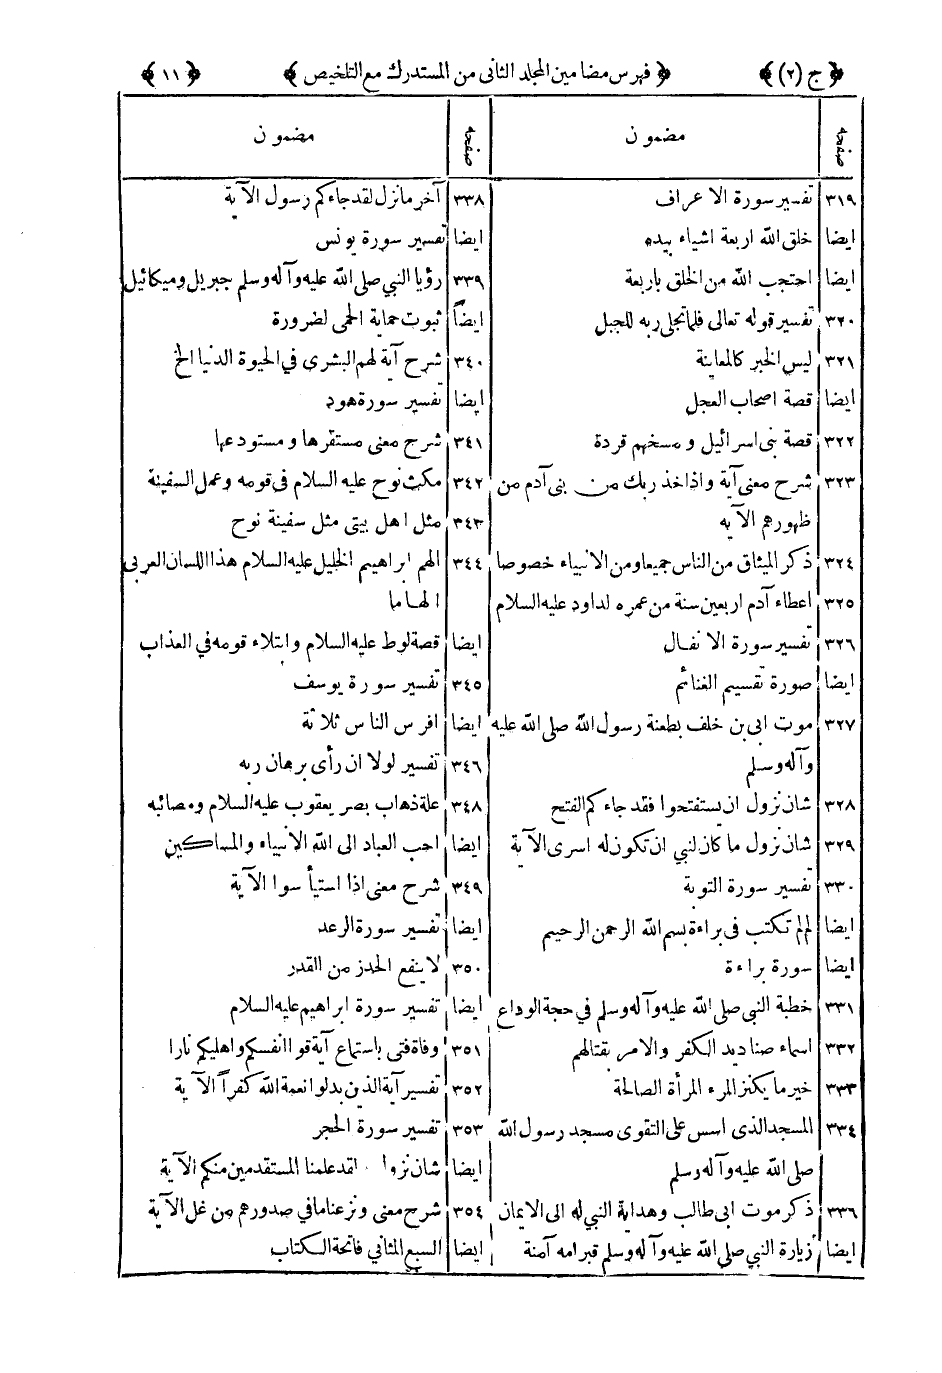 ﴿ ج (٢) ﴾ ﴿ فهرس مضامين المجلد الثانى من المستدرك مع التلخيص ﴾ ﴿ ١١ ﴾
صفحه مضمون
٣١٩ تفسير سورة الاعراف
ايضا خلق الله اربعة اشياء بيده
ايضا احتجب الله من الخلق باربعة
٣٢٠ تفسير قوله تعالى فلما تجلى ربه للجبل
٣٢١ ليس الخبر كالمعاينة
ايضا قصة اصحاب العجل
٣٢٢ قصة بنى اسرائيل و مسخهم قردة
٣٢٣ شرح معنى آية واذ اخذ ربك من بنى آدم من
ظهورهم الآيه
٣٢٤ ذكر الميثاق من الناس جميعا ومن الانبياء خصوصا
٣٢٥ اعطاء آدم اربعين سنة من عمره لداود عليه السلام
٣٢٦ تفسير سورة الانفال
ايضا صورة تقسيم الغنائم
٣٢٧ موت ابى بن خلف بطعنة رسول الله صلى الله عليه
وآله وسلم
٣٢٨ شان نزول ان يستفتحوا فقد جاءكم الفتح
٣٢٩ شان نزول ما كان لنبي ان تكون له اسرى الآية
٣٣٠ تفسير سورة التوبة
ايضا لم لم تكتب فى براءة بسم الله الرحمن الرحيم
ايضا سورة براءة
٣٣١ خطبة النبي صلى الله عليه وآله وسلم في حجة الوداع
٣٣٢ اسماء صناديد الكفر والامر بقتالهم
٣٣٣ خير ما يكنز المرء المرأة الصالحة
٣٣٤ المسجد الذى اسس على التقوى مسجد رسول الله
صلى الله عليه وآله وسلم
٣٣٦ ذكر موت ابى طالب وهداية النبي له الى الايمان
ايضا زيارة النبي صلى الله عليه وآله وسلم قبر امه آمنة
صفحه مضمون
٣٣٨ آخر ما نزل لقد جاءكم رسول الآية
ايضا تفسير سورة يونس
٣٣٩ رؤيا النبي صلى الله عليه وآله وسلم جبريل وميكائيل
ايضاً ثبوت حماية الحمى لضرورة
٣٤٠ شرح آية لهم البشرى في الحيوة الدنيا الخ
ايضا تفسير سورة هود
٣٤١ شرح معنى مستقرها و مستودعها
٣٤٢ مكث نوح عليه السلام فى قومه وعمل السفينة
٣٤٣ مثل اهل بيتى مثل سفينة نوح
٣٤٤ الهم ابراهيم الخليل عليه السلام هذا اللسان العربي
الهاما
ايضا قصة لوط عليه السلام وابتلاء قومه في العذاب
٣٤٥ تفسير سورة يوسف
ايضا افرس الناس ثلاثة
٣٤٦ تفسير لولا ان رأى برهان ربه
٣٤٨ علة ذهاب بصر يعقوب عليه السلام ومصائبه
ايضا احب العباد الى الله الانبياء والمساكين
٣٤٩ شرح معنى اذا استيأسوا الآية
ايضا تفسير سورة الرعد
٣٥٠ لا ينفع الحذر من القدر
ايضا تفسير سورة ابراهيم عليه السلام
٣٥١ وفاة فتى باستماع آية قوا انفسكم واهليكم نارا
٣٥٢ تفسير آية الذين بدلوا نعمة الله كفراً الآية
٣٥٣ تفسير سورة الحجر
ايضا شان نزول لقد علمنا المستقدمين منكم الآية
٣٥٤ شرح معنى ونزعنا ما في صدورهم من غل الآية
ايضا السبع المثاني فاتحة الكتاب